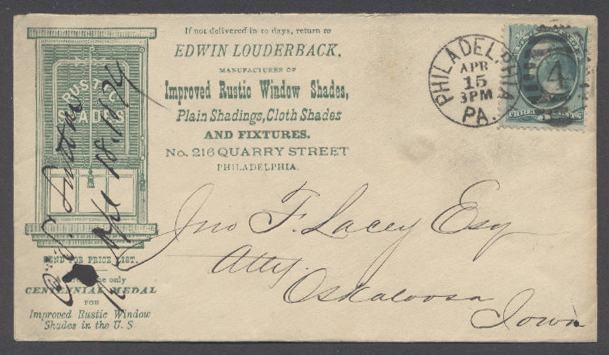 If not delivered in 10 days, return to
EDWIN LOUDERBACK,
MANUFACTURER OF
Improved Rustic Window Shades,
Plain Shadings, Cloth Shades
AND FIXTURES.
No. 216 QUARRY STREET
PHILADELPHIA.
RUSTIC
SHADES
SEND FOR PRICE LIST.
the only
CENTENNIAL MEDAL
FOR
Improved Rustic Window
Shades in the U. S
PHILADELPHIA
APR
15
3PM
PA.
4
Jno F. Lacey Esq
Atty.
Oskaloosa
Iowa